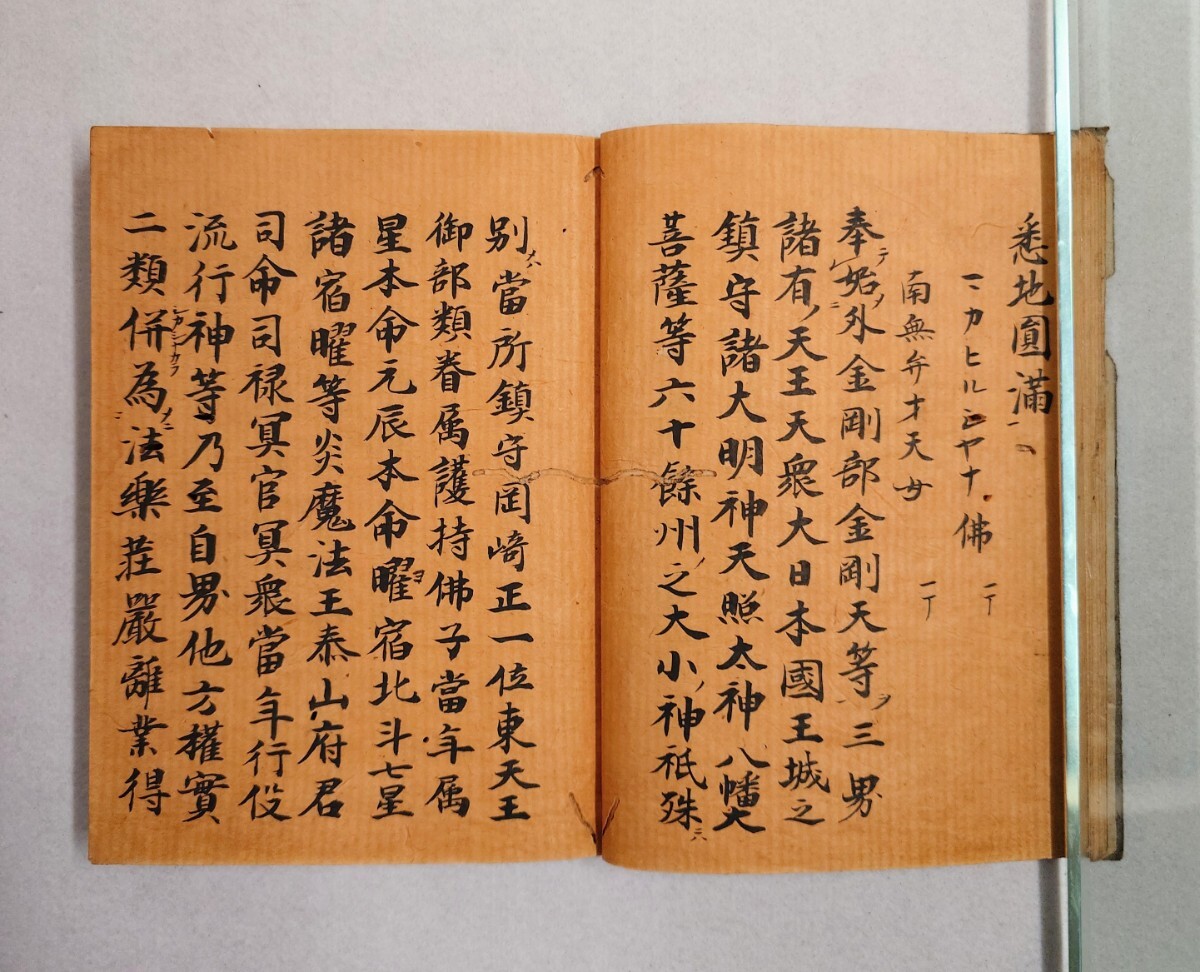 悉地圓滿
マカヒルシヤナ佛 一丁
南無弁才天女 一丁
奉始外金剛部金剛天等三界
諸有天王天衆大日本國王城之
鎮守諸大明神天照太神八幡大
菩薩等六十餘州之大小神祇殊ニハ
別ニハ當所鎮守岡崎正一位東天王
御部類眷属護持佛子當年属
星本命元辰本命曜宿北斗七星
諸宿曜等炎魔法王泰山府君
司命司禄冥官冥衆當年行役
流行神等乃至自界他方權實
二類併為法樂荘嚴離業得